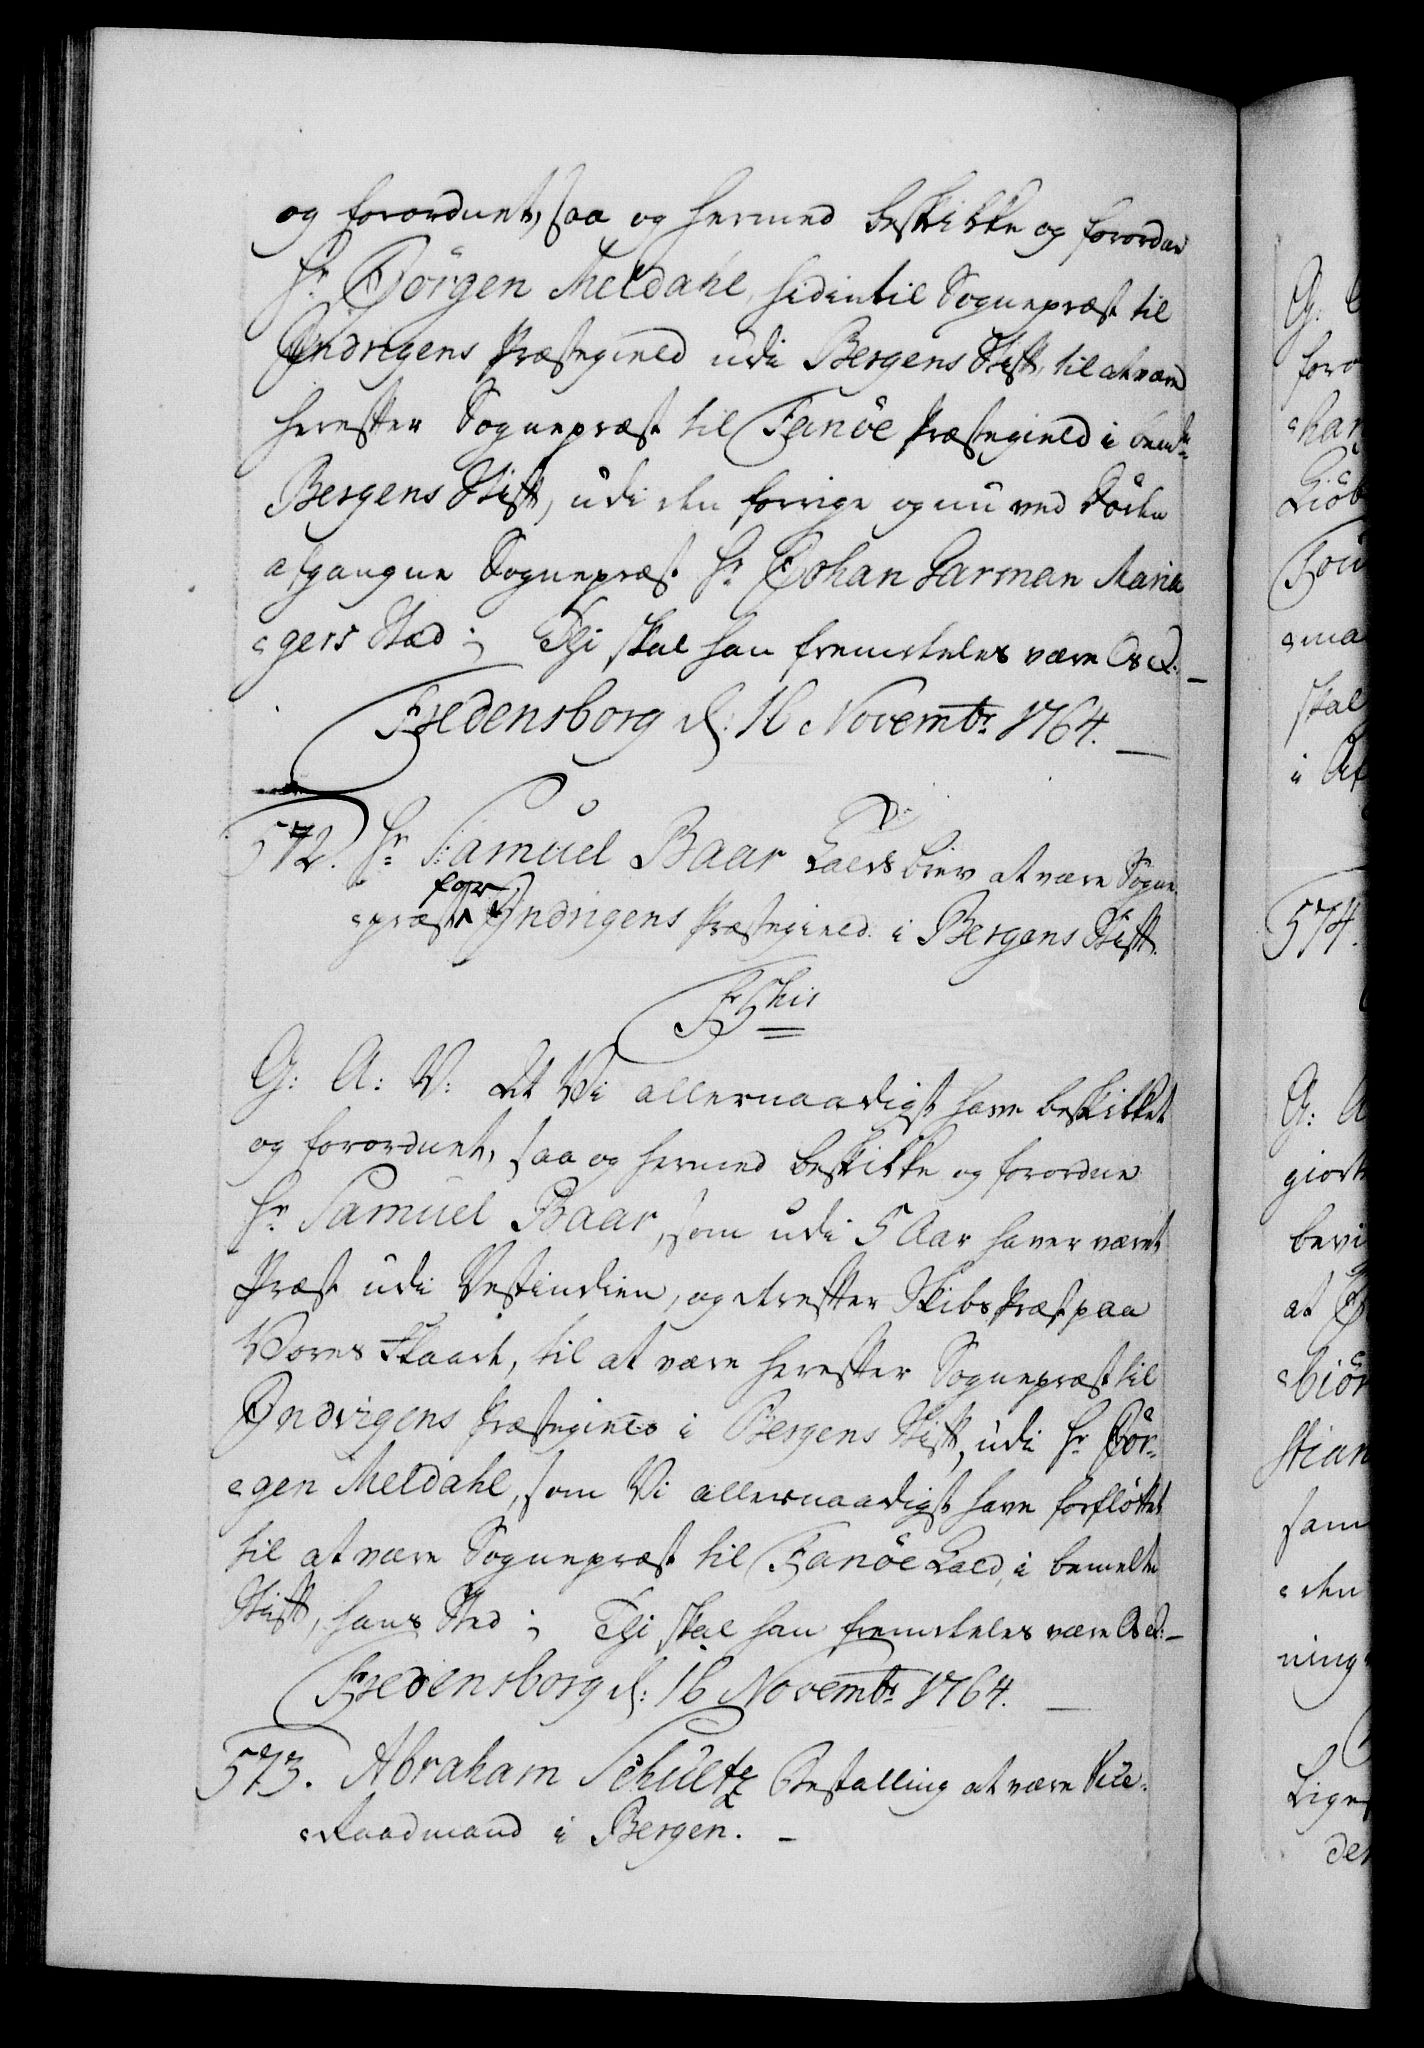 og forordnet, saa og hermed beskikke og forordne
Hr Jörgen Meldahl, hidentil Sognepræst til
Indvigens Præstegield udi Bergens Stift, til at være
herefter Sognepræst til Fanöe Præstegield i bemte
Bergens Stift, udi den forrige og nu ved Döden
afgangne Sognepræst Hr Johan Garman Maria
gers Stæd; Thi skal han fremdeles være Os &.
Fredensborg d: 16 Novembr 1764.
572. Hr Samuel Baar Kaldsbrev at være Sogne
præst for Indvigens Præstegield i Bergens Stift.
F 5this
G: A: V: At Vi allernaadigst have beskikket
og forordnet, saa og hermed beskikke og forordne
Hr Samuel Baar, som udi 5 Aar haver været
Præst udi Vestindien, og derefter Skibs Præst paa
Vores Flaade, til at være herefter Sognepræst til
Indvigens Præstegield i Bergens Stift, udi Hr Jör
gen Meldahl, som Vi allernaadigst have forflöttet
til at være Sognepræst til Fanöe Kald, i bemelte
Stift, hans Sted; Thi skal han fremdeles være Os &:
Fredensborg d: 16 Novembr 1764.
573. Abraham Schultz Bestalling at være Vice
Raadmand i Bergen.
574.